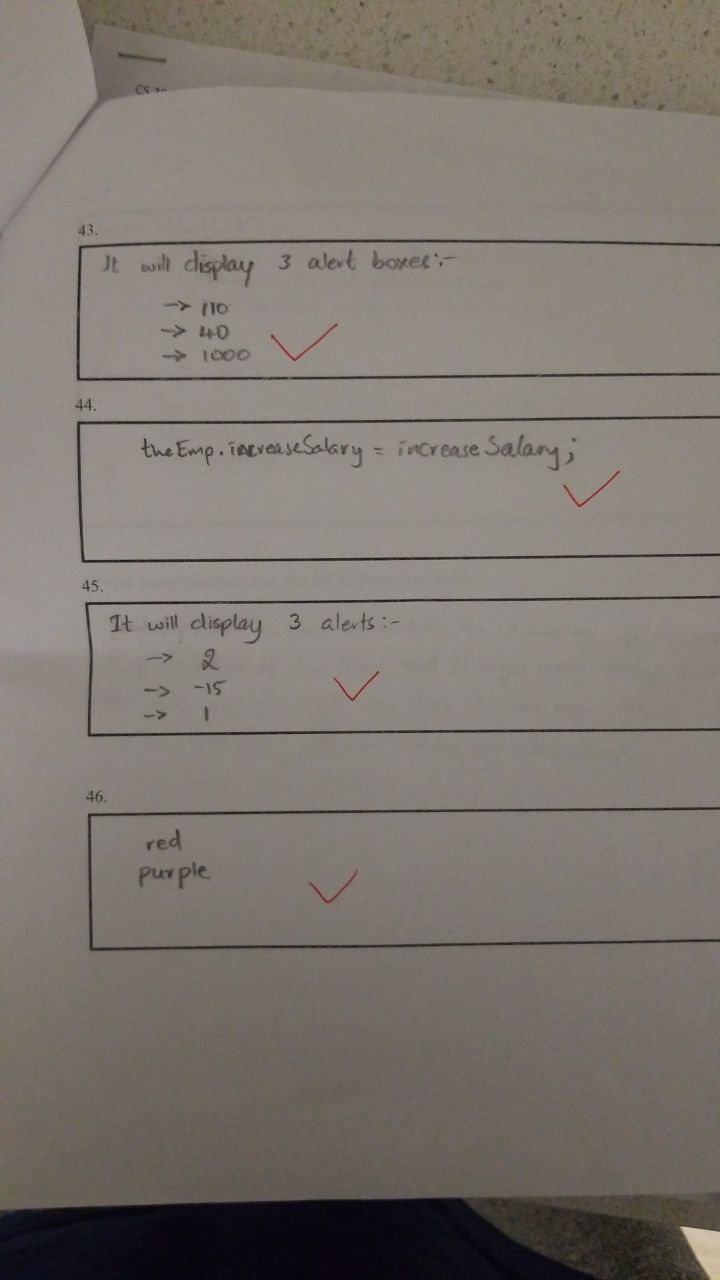 CS
43.
It will display 3 alert boxes:-
-> 110
-> 40
-> 1000
44.
theEmp.increaseSalary = increaseSalary;
45.
It will display 3 alerts:-
-> 2
-> -15
-> 1
46.
red
purple